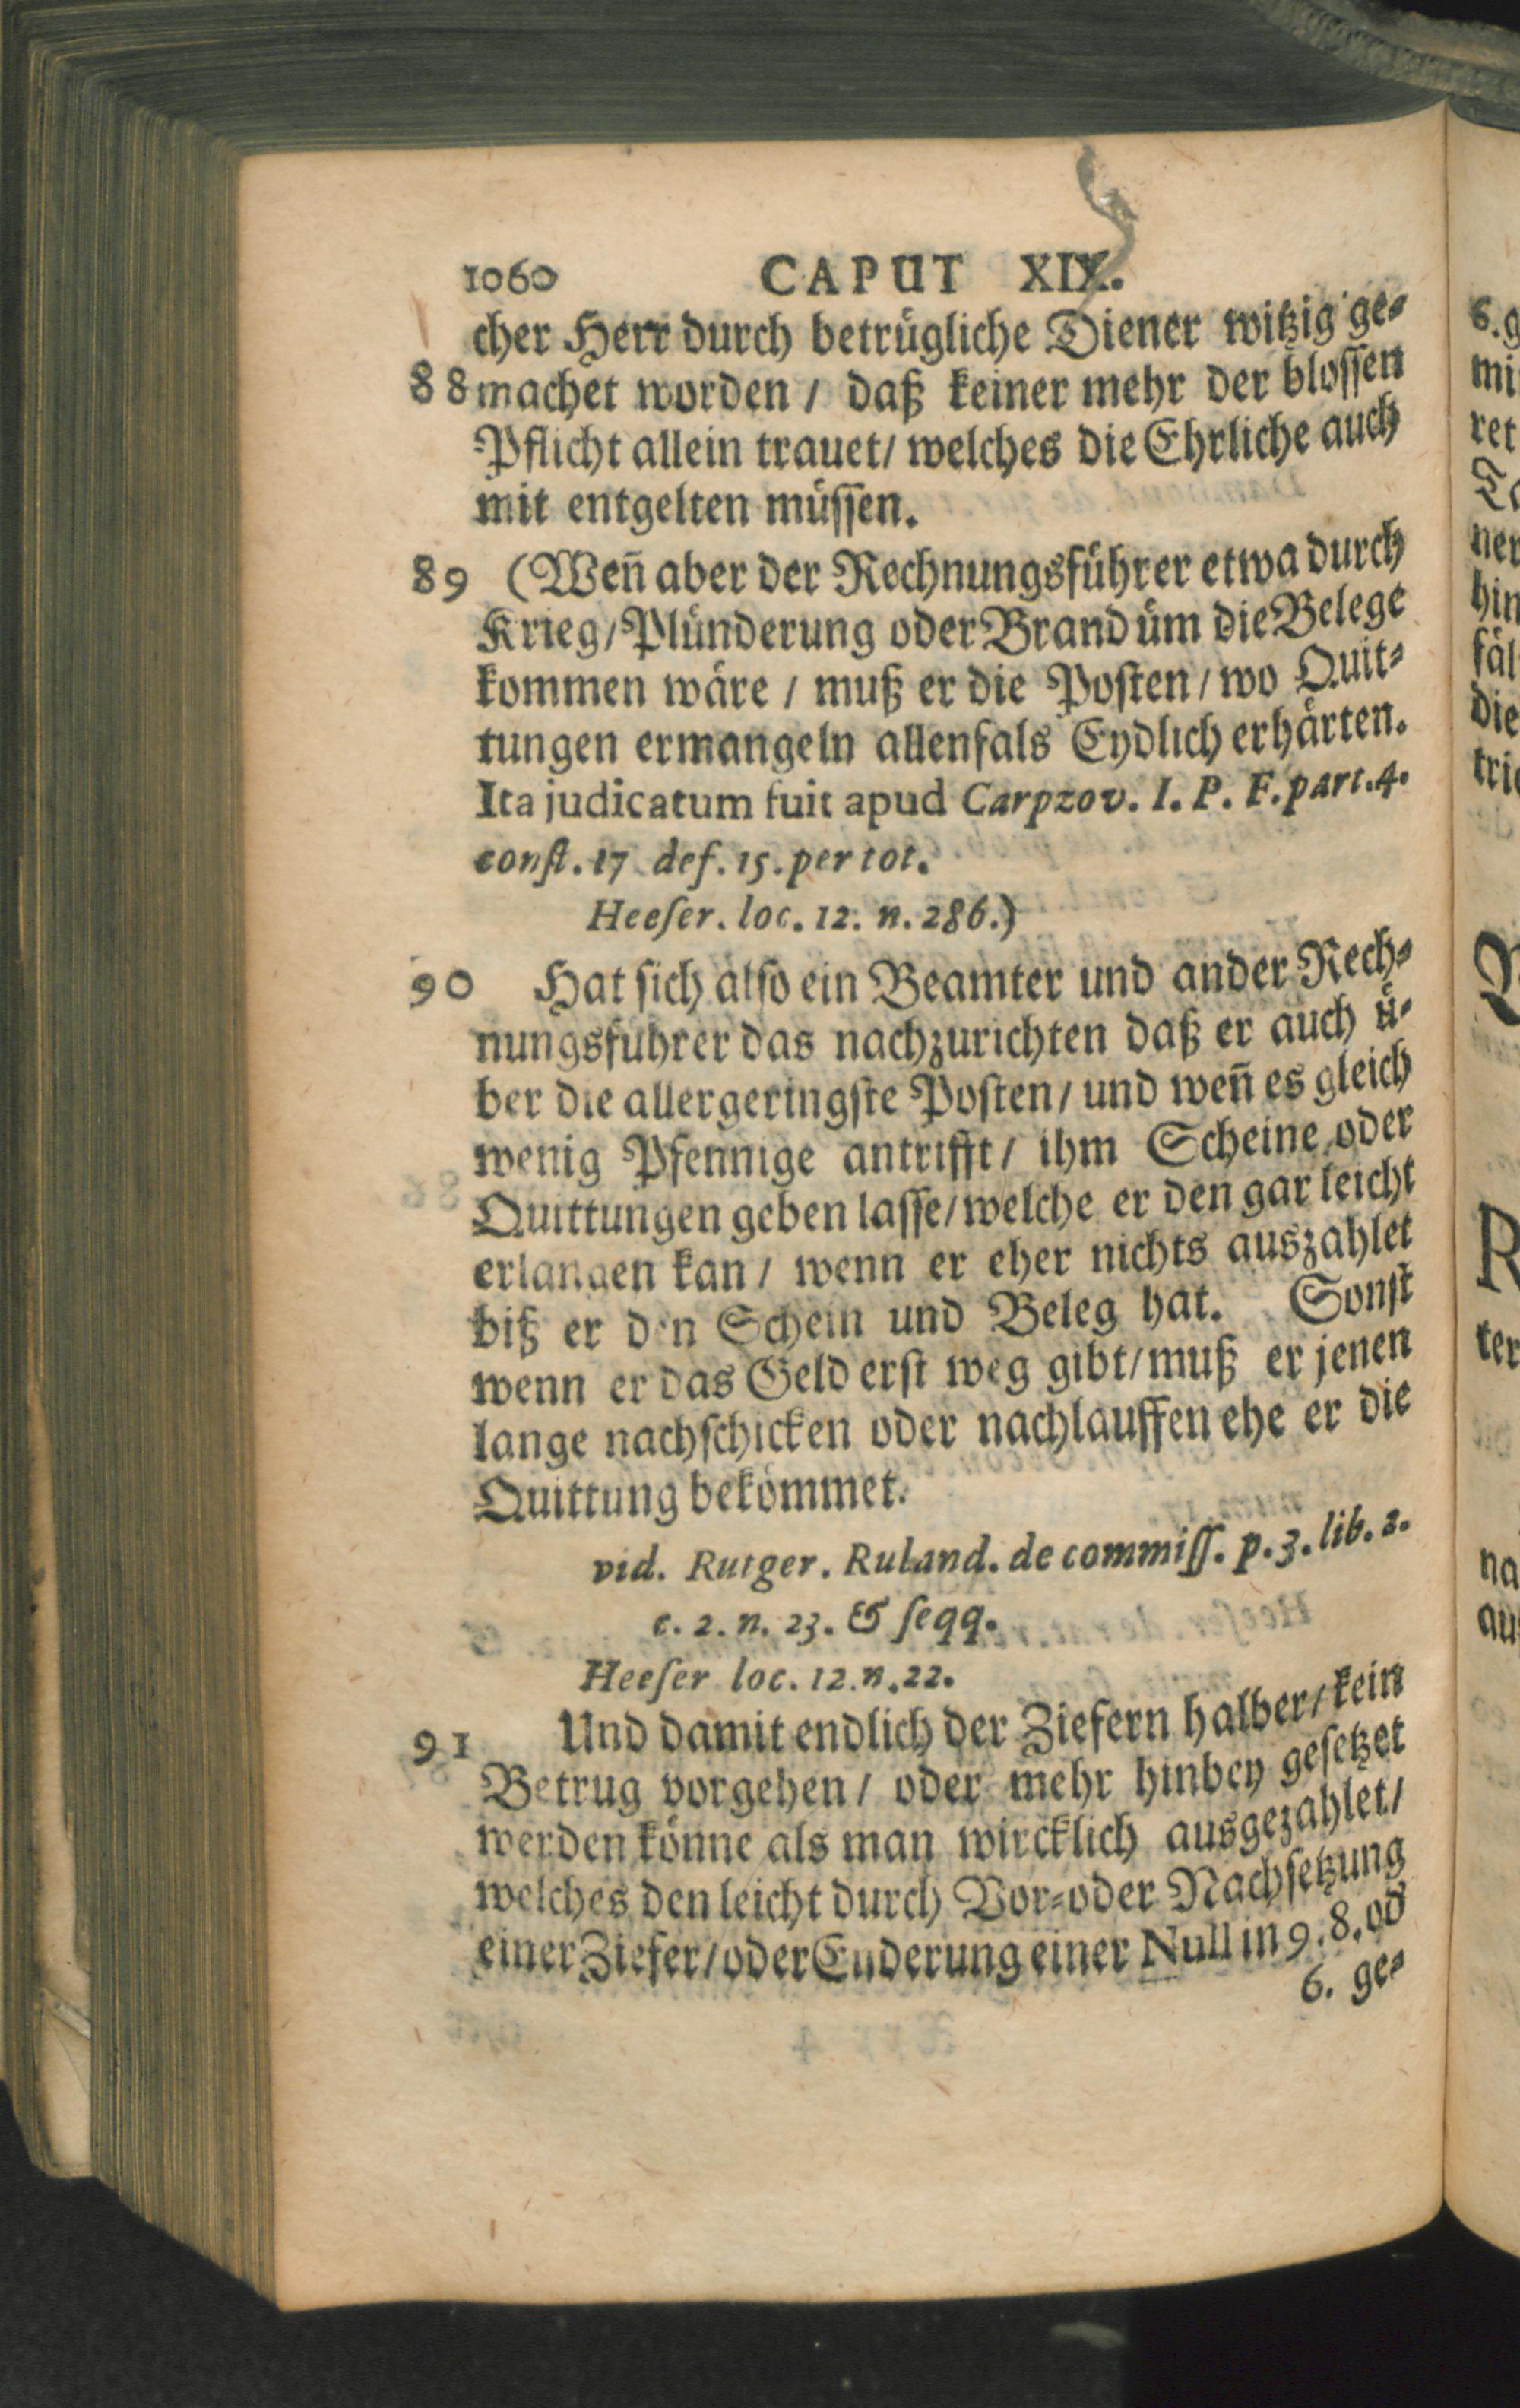 1060 CAPUT XIX.
cher Herr durch betrügliche Diener witzig ge⸗
88 machet worden / daß keiner mehr der blossen
Pflicht allein trauet / welches die Ehrliche auch
mit entgelten müssen.
89 (Weñ aber der Rechnungsführer etwa durch
Krieg / Plünderung oder Brand üm die Belege
kommen wäre / muß er die Posten / wo Quit⸗
tungen ermangeln allenfals Eydlich erhärten.
Ita judicatum fuit apud Carpzov. I. P. F. part. 4.
const. 17 def. 15. per tot.
Heeser. loc. 12. n. 286.)
90 Hat sich also ein Beamter und ander Rech⸗
nungsfuhrer das nachzurichten daß er auch ü⸗
ber die allergeringste Posten / und weñ es gleich
wenig Pfennige antrifft / ihm Scheine oder
Quittungen geben lasse / welche er den gar leicht
erlangen kan / wenn er eher nichts auszahlet
biß er den Schein und Beleg hat. Sonst
wenn er das Geld erst weg gibt / muß er jenen
lange nachschicken oder nachlauffen ehe er die
Quittung bekömmet.
vid. Rutger. Ruland. de commiss. p. 3. lib. 2.
c. 2. n. 23. & seqq.
Heeser loc. 12. n. 22.
91 Und damit endlich der Ziefern halber / kein
Betrug vorgehen / oder mehr hinbey gesetzet
werden könne als man wircklich ausgezahlet /
welches den leicht durch Vor⸗ oder Nachsetzung
einer Ziefer / oder Enderung einer Null in 9. 8. od
6. ge⸗
6. g
mi
ret
ner
hin
fäl
die
tri
R
ter
na
au